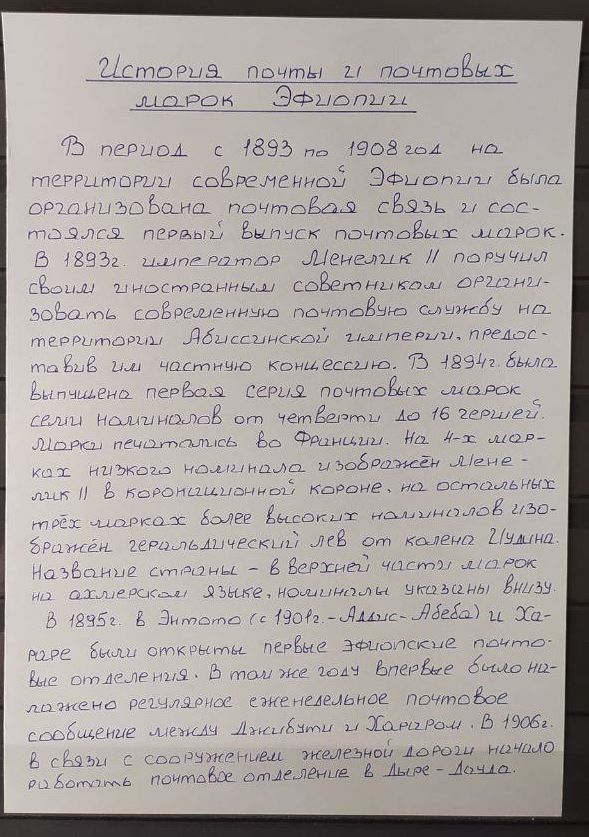 История почты и почтовых
марок Эфиопии
В период с 1893 по 1908 год на
территории современной Эфиопии была
организована почтовая связь и сос-
тоялся первый выпуск почтовых марок.
В 1893г. император Менелик II поручил
своим иностранным советникам органи-
зовать современную почтовую службу на
территории Абиссинской империи, предос-
тавив им частную концессию. В 1894г. была
выпущена первая серия почтовых марок
семи номиналов от четверти до 16 гершей.
Марки печатались во Франции. На 4-х мар-
ках низкого номинала изображён Мене-
лик II в коронационной короне, на остальных
трёх марках более высоких номиналов изо-
бражён геральдический лев от колена Иудина.
Название страны - в верхней части марок
на ахмерском языке, номиналы указаны внизу.
В 1895г. в Энтото (с 1901г. - Аддис-Абеба) и Ха-
раре были открыты первые эфиопские почто-
вые отделения. В том же году впервые было на-
лажено регулярное еженедельное почтовое
сообщение между Джибути и Хараром. В 1906г.
в связи с сооружением железной дороги начало
работать почтовое отделение в Дыре-Дауа.